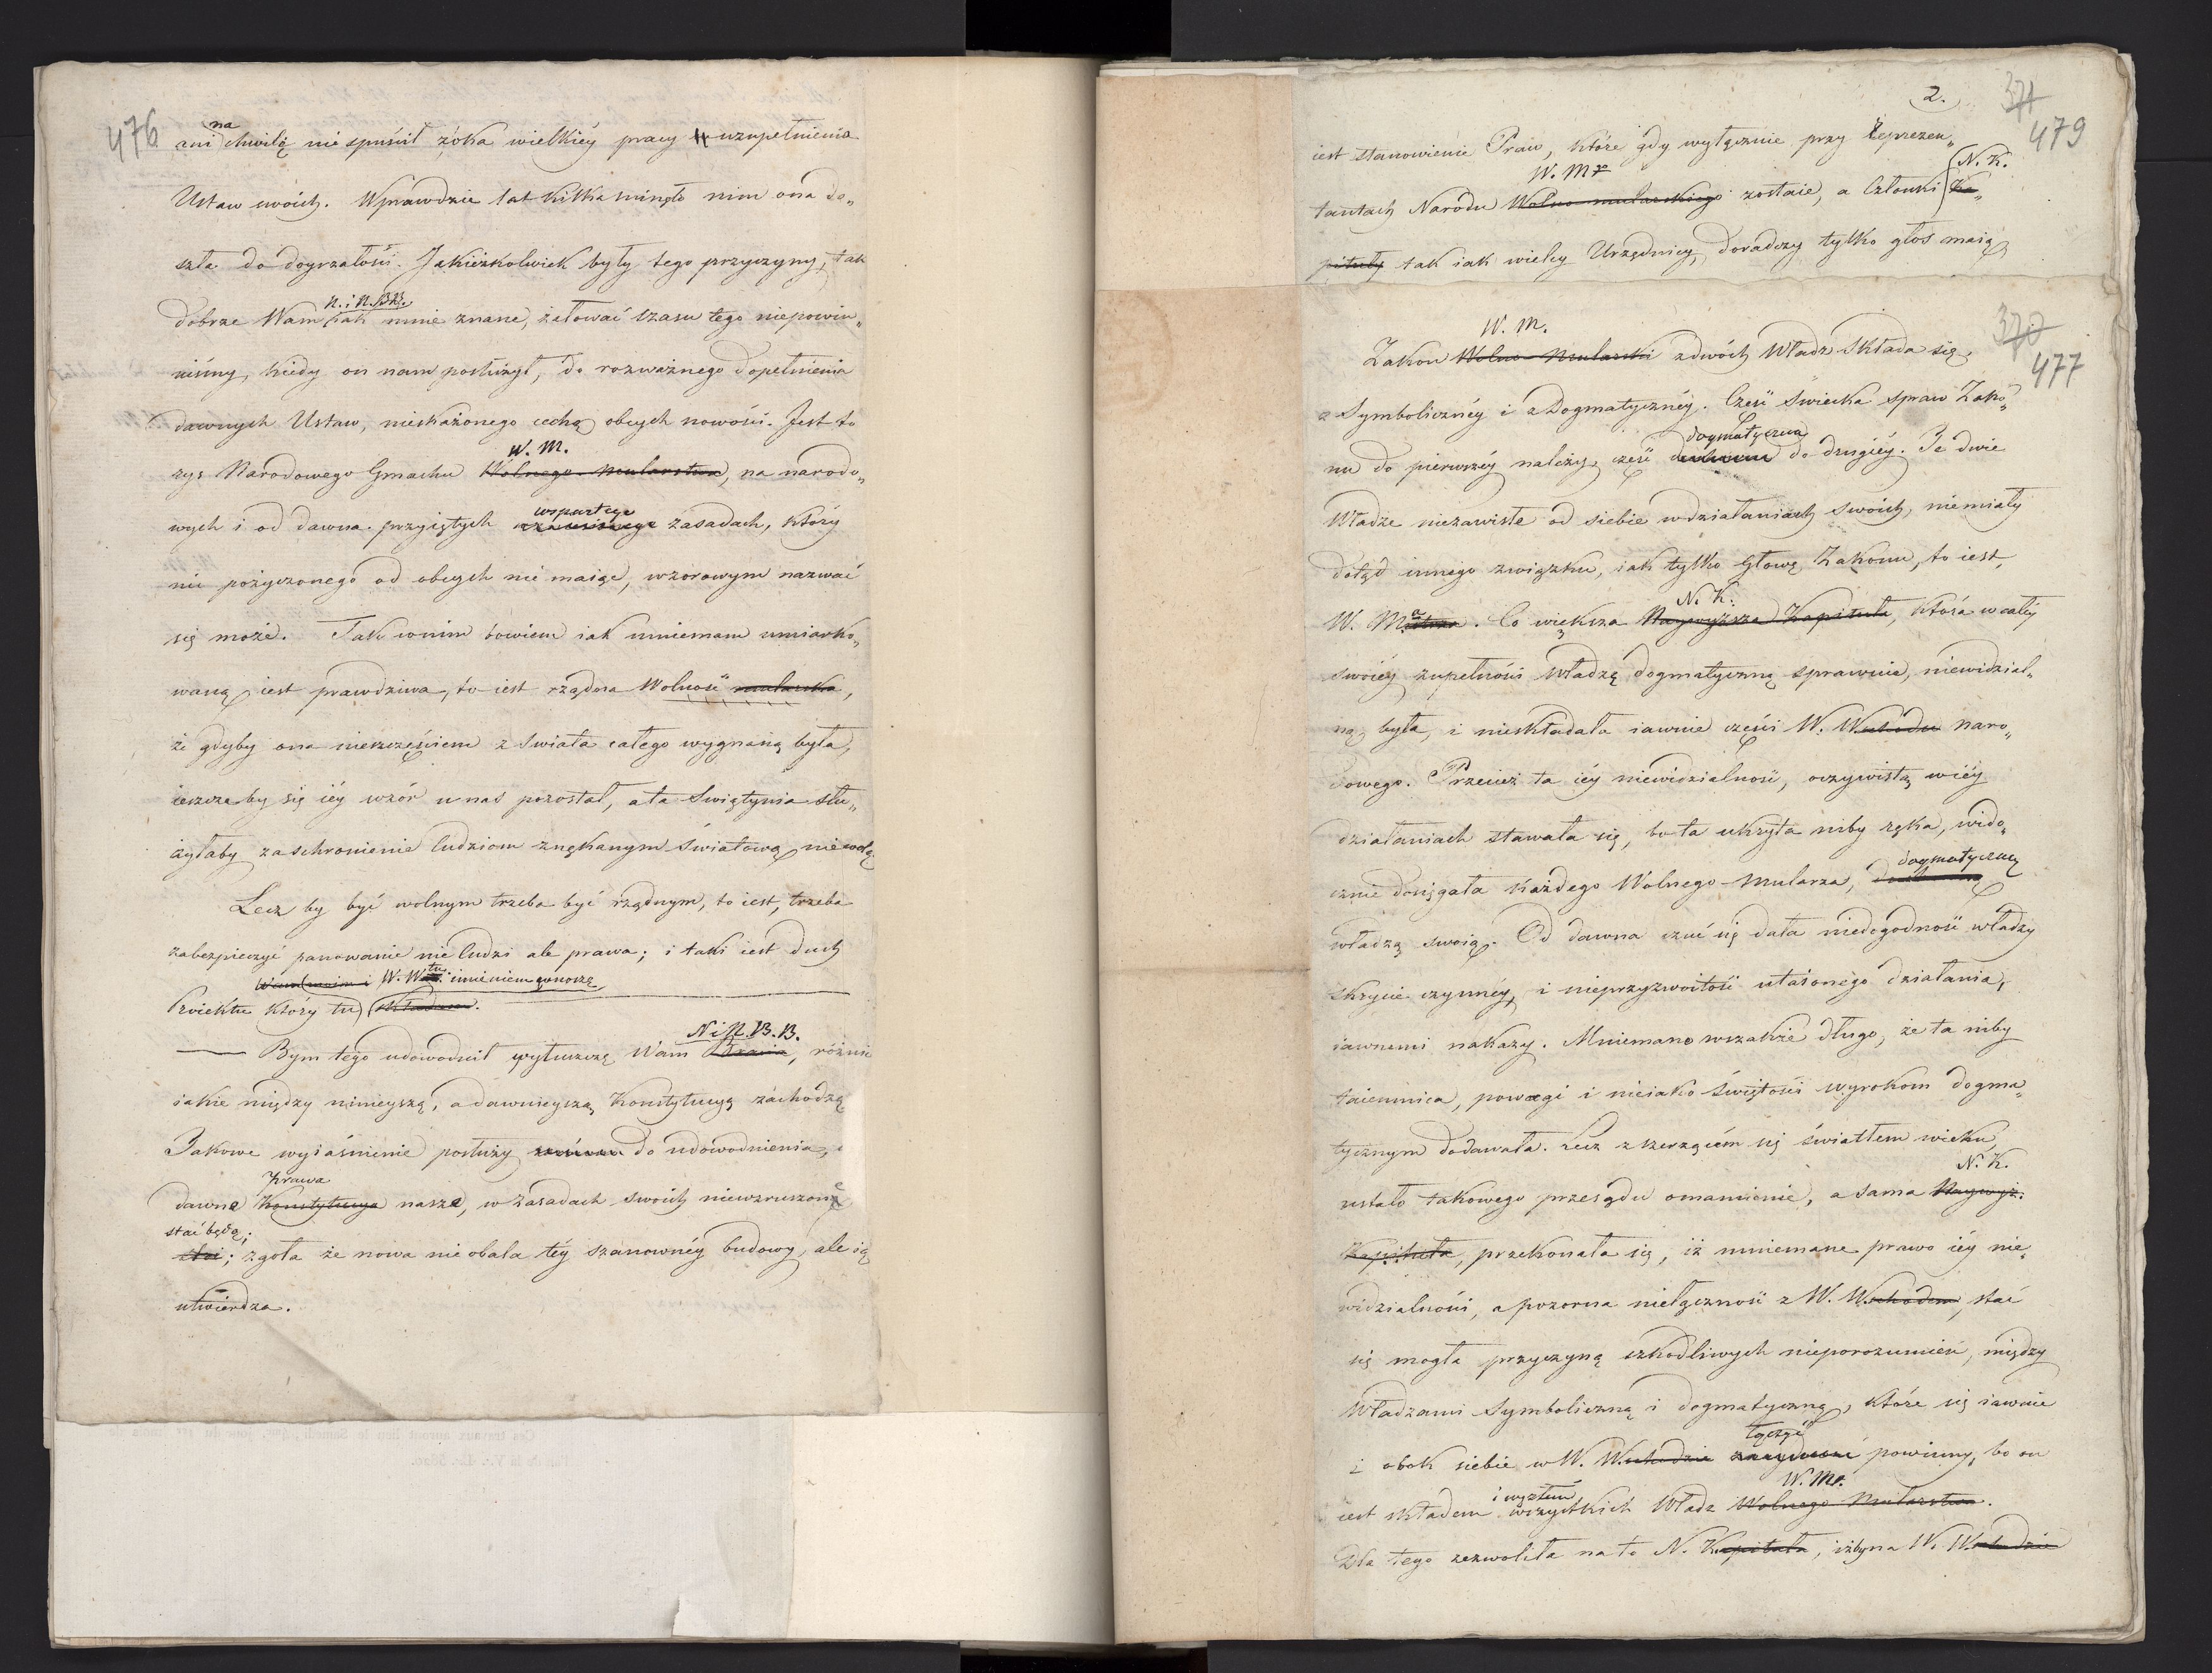 476
na
ani chwilę nie spuścił z'oka wielkiéy pracy uzupełnienia
Ustaw swoich. Wprawdzie lat kilka minęło nim ona do„
szła do doyrzałości. Jakieżkolwiek były tego przyczyny, tak
N. i N. BB.
dobrze Wam iak mnie znane, żałować czasu tego niepowin„
niśmy, kiedy on nam posłużył, do rozważnego dopełnienia
dawnych Ustaw, nieskażonego cechą obcych nowości. Jest to
W. M.
rys Narodowego Gmachu Wolnego-Mularstwa, na narodo„
wspartego
wych i od dawna przyiętych zasadach, który
nic pożyczonego od obcych nie maiąc, wzorowym nazwać
się może. Tak w nim bowiem iak mniemam umiarko„
waną iest prawdziwa, to iest rządna Wolność mularska,
że gdyby ona nieszczęściem z świata całego wygnaną była,
ieszcze by się iéy wzór u nas pozostał, a ta Swiątynia słu„
żyłaby za schronienie ludziom znękanym światową niewolą.
Lecz by być wolnym trzeba być rządnym, to iest, trzeba
zabezpieczyć panowanie nie ludzi ale prawa; i taki iest duch
W. W. imieniem wnoszę
Proiektu który tu składam.
N i N. B. B.
Bym tego udowodnił wyłuszczę Wam Bracia, różnice
iakie między ninieyszą, a dawnieyszą Konstytucyą zachodzą
Takowe wyiaśnienie posłuży zarówno do udowodnienia,
Prawa
dawne Konstytucya nasze, w zasadach swoich niewzruszone
stać będą;
stoi; zgoła że nowa nie obala téy szanownéy budowy, ale ią
utwierdza.
2.
371
479
iest stanowienie Praw, które gdy wyłącznie przy Reprezen„
W. Mr
N. K.
tantach Narodu Wolno-mularskiego zostaie, a Członki Ka„
pituły tak iak wielcy Urzędnicy, doradczy tylko głos maią,
370
477
W. M.
Zakon Wolno-Mularski z dwóch Władz składa się,
z Symbolicznéy i z Dogmatycznéy. Część świecka spraw Zako„
dogmatyczna
nu do pierwszéy należy, część duchowna do drugiéy. Te dwie
Władze niezawisłe od siebie w działaniach swoich, nie miały
dotąd innego związku, iak tylko Głowę Zakonu, to iest,
N. K.
W. Mistrza. Co większa Naywyższa Kapituła, która w całéy
swoiéy zupełności władzę dogmatyczną sprawuie, niewidzial„
ną była, i nieskładała iawnie części W. Wschodu naro„
dowego. Przecież ta iéy niewidzialność, oczywistą w iéy
działaniach stawała się, bo ta ukryta niby ręka, wido„
dogmatyczną
cznie dosięgała każdego Wolnego-Mularza, duchowną
władzą swoią. Od dawna czuć się dała niedogodność władzy
skrycie czynnéy, i nieprzyzwoitość utaionego działania,
iawnemi nakazy. Mniemano wszakże długo, że ta niby
taiemnica, powagi i nieiako świętości wyrokom dogma„
tycznym dodawała. Lecz z szerzącém się światłem wieku,
N. K.
ustało takowego przesądu omamienie, a sama Naywyż.
Kapituła, przekonała się, iż mniemane prawo iéy nie„
widzialności, a pozorna niełączność z W. Wschodem, stać
się mogła przyczyną szkodliwych nieporozumień, między
Władzami Symboliczną i dogmatyczną, które się iawnie
łączyć
i obok siebie w W. Wschodzie znaydować powinny, bo on
i węzłem
W. Mr.
iest składem wszystkich Władz Wolnego Mularstwa.
Dla tego zezwoliła na to N. Kapituła, iżby na W. Wschodzie